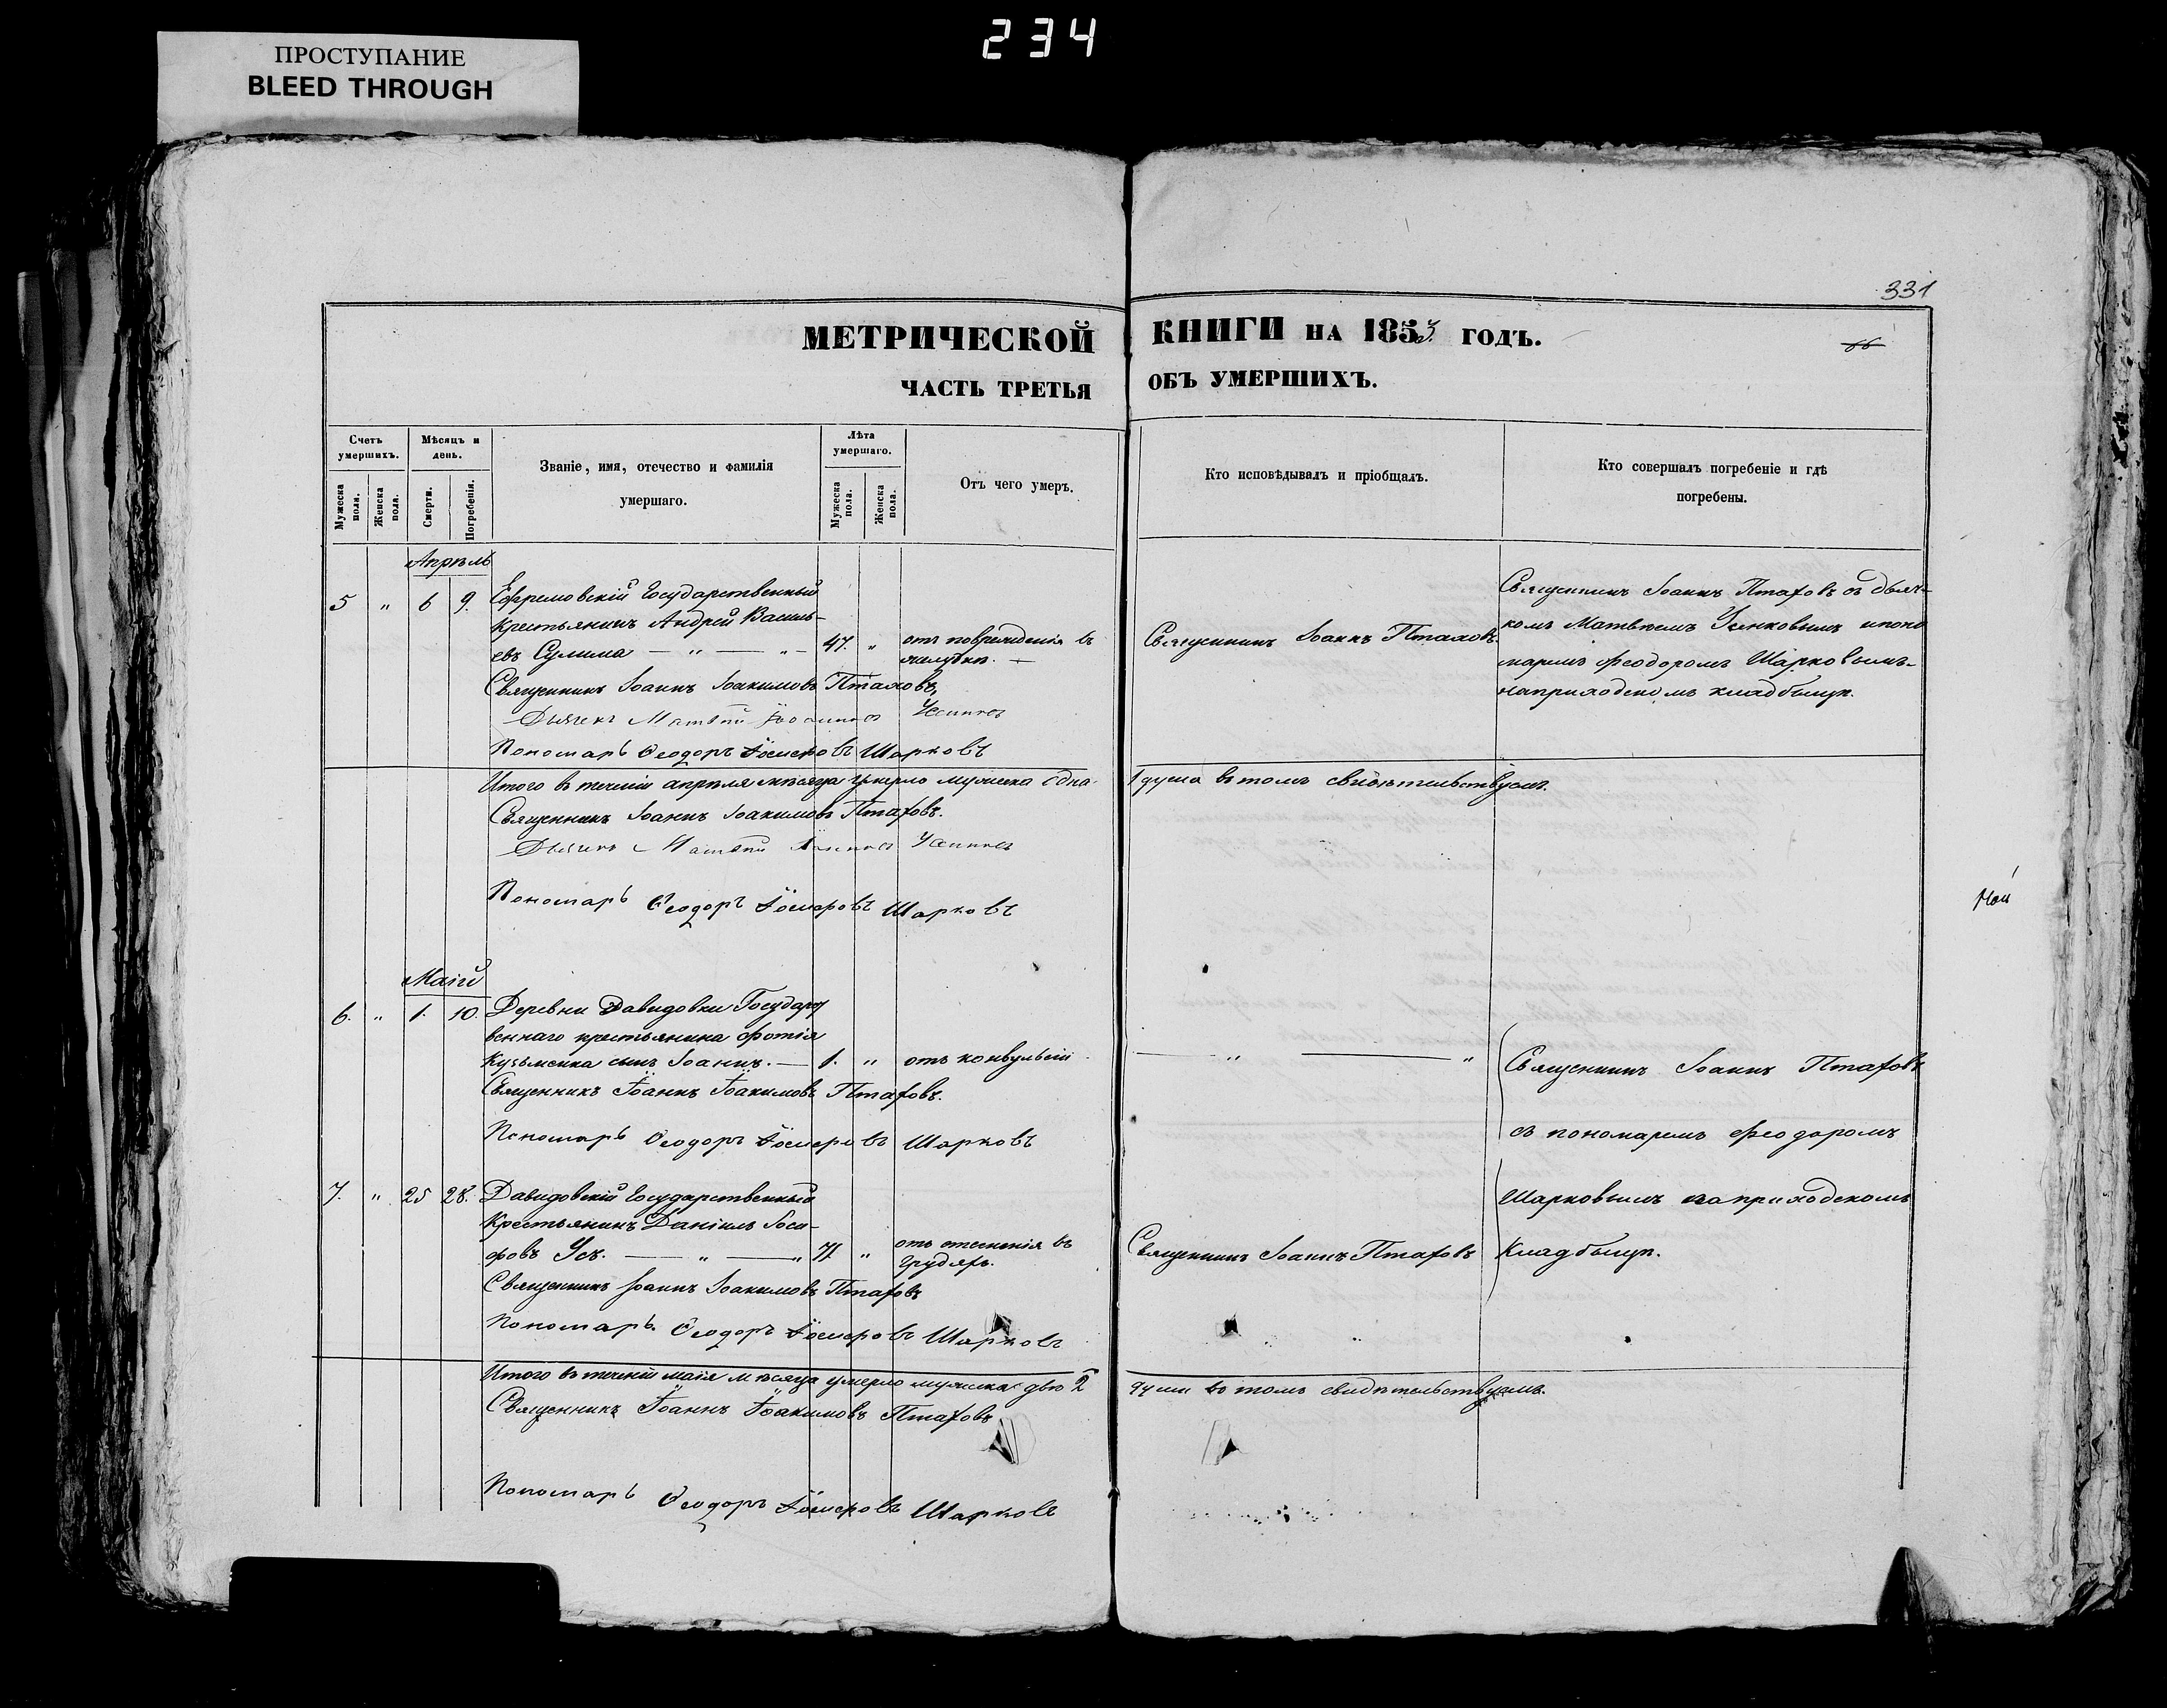 234
ПРОСТУПАНИЕ
BLEED THROUGH
331
МЕТРИЧЕСКОЙ КНИГИ НА 185 ГОДЪ.
ЧАСТЬ ТРЕТЬЯ ОБЪ УМЕРШИХЪ.
Счетъ умершихъ.
Мѣсяцъ и день.
Званіе, имя, отечество и фамилія умершаго.
Лѣта умершаго.
Отъ чего умеръ.
Кто исповѣдывалъ и пріобщалъ.
Кто совершалъ погребеніе и гдѣ погребены.
Мужеска пола.
Женска пола.
Смерти.
Погребенія.
Мужеска пола.
Женска пола.
Апрѣль
5 " 6 9. Ефремовскій Государственный
Крестьянинъ Андрей Василь-
евъ Сулима — " — " — 47. " отъ поврежденія въ
желудкѣ. —
Священникъ Іоаннъ Птаховъ
Священникъ Іоаннъ Птаховъ съ дьяч-
комъ Матвѣемъ и поно
маремъ Феодоромъ Шарковымъ
на приходскомъ кладбищѣ.
Священникъ Іоаннъ Іоакимовъ Птаховъ,
Дьячекъ Матвѣй
Пономарь Ѳеодоръ Шарковъ
Итого въ теченіи апрѣля мѣсяца умерло мужеска одна 1 душа въ томъ свидѣтельствуемъ.
Священникъ Іоаннъ Іоакимовъ Птаховъ.
Дьячекъ Матвѣй
Пономарь Ѳеодоръ Шарковъ
Маій
6. " 1. 10. Деревни Давидовки Государст
веннаго крестьянина Фотія
Кузьменка сынъ Іоаннъ. — 1. " отъ конвульсіи
— " — "
Священникъ Іоаннъ Птаховъ
съ пономаремъ Феодоромъ
Священникъ Іоаннъ Іоакимовъ Птаховъ.
Пономарь Ѳеодоръ Шарковъ
7. " 25 28. Давидовскій Государственный
Крестьянинъ Даніилъ Іоси-
фовъ Усъ. — " — " 71 " отъ стесненія въ
грудяхъ.
Священникъ Іоаннъ Птаховъ
Шарковымъ на приходскомъ
Кладбищѣ.
Священникъ Іоаннъ Іоакимовъ Птаховъ
Пономарь Ѳеодоръ Шарковъ
Итого въ теченіи маія мѣсяца умерло мужеска двѣ 2 души въ томъ свидѣтельствуемъ.
Священникъ Іоаннъ Іоакимовъ Птаховъ
Пономарь Ѳеодоръ Шарковъ